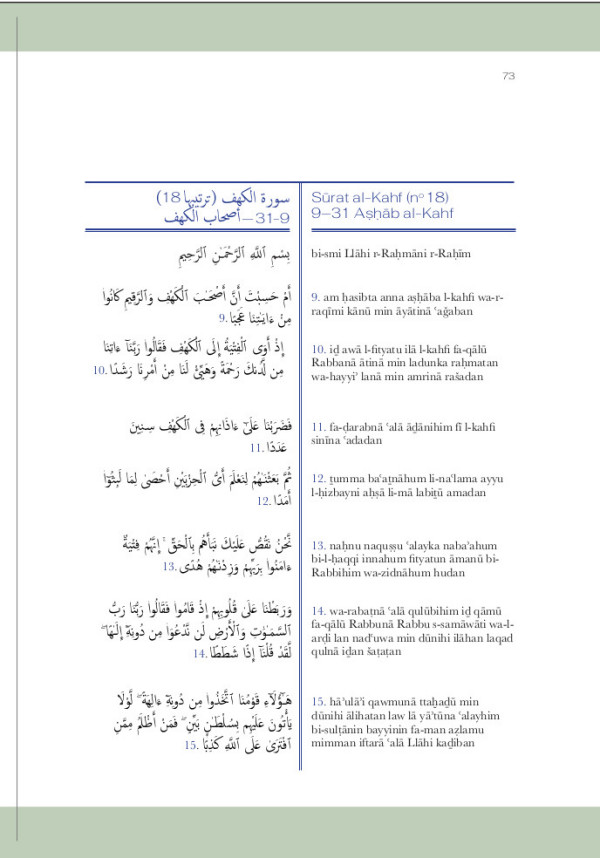 73
سورة الكهف (ترتيبها 18)
9-31 – أصحاب الكهف
بِسْمِ ٱللَّهِ ٱلرَّحْمَـٰنِ ٱلرَّحِيمِ
أَمْ حَسِبْتَ أَنَّ أَصْحَـٰبَ ٱلْكَهْفِ وَٱلرَّقِيمِ كَانُوا۟
مِنْ ءَايَـٰتِنَا عَجَبًا .9
إِذْ أَوَى ٱلْفِتْيَةُ إِلَى ٱلْكَهْفِ فَقَالُوا۟ رَبَّنَآ ءَاتِنَا
مِن لَّدُنكَ رَحْمَةً وَهَيِّئْ لَنَا مِنْ أَمْرِنَا رَشَدًا .10
فَضَرَبْنَا عَلَىٰٓ ءَاذَانِهِمْ فِى ٱلْكَهْفِ سِنِينَ
عَدَدًا .11
ثُمَّ بَعَثْنَـٰهُمْ لِنَعْلَمَ أَىُّ ٱلْحِزْبَيْنِ أَحْصَىٰ لِمَا لَبِثُوٓا۟
أَمَدًا .12
نَّحْنُ نَقُصُّ عَلَيْكَ نَبَأَهُم بِٱلْحَقِّ ۚ إِنَّهُمْ فِتْيَةٌ
ءَامَنُوا۟ بِرَبِّهِمْ وَزِدْنَـٰهُمْ هُدًى .13
وَرَبَطْنَا عَلَىٰ قُلُوبِهِمْ إِذْ قَامُوا۟ فَقَالُوا۟ رَبُّنَا رَبُّ
ٱلسَّمَـٰوَٰتِ وَٱلْأَرْضِ لَن نَّدْعُوَا۟ مِن دُونِهِۦٓ إِلَـٰهًا ۖ
لَّقَدْ قُلْنَآ إِذًا شَطَطًا .14
هَـٰٓؤُلَآءِ قَوْمُنَا ٱتَّخَذُوا۟ مِن دُونِهِۦٓ ءَالِهَةً ۖ لَّوْلَا
يَأْتُونَ عَلَيْهِم بِسُلْطَـٰنٍۭ بَيِّنٍ ۖ فَمَنْ أَظْلَمُ مِمَّنِ
ٱفْتَرَىٰ عَلَى ٱللَّهِ كَذِبًا .15
Sūrat al-Kahf (nº 18)
9–31 Aṣḥāb al-Kahf
bi-smi Llāhi r-Raḥmāni r-Raḥīm
9. am ḥasibta anna aṣḥāba l-kahfi wa-r-
raqīmi kānū min āyātinā ʿaǧaban
10. iḏ awā l-fityatu ilā l-kahfi fa-qālū
Rabbanā ātinā min ladunka raḥmatan
wa-hayyiʾ lanā min amrinā rašadan
11. fa-ḍarabnā ʿalā āḏānihim fī l-kahfi
sinīna ʿadadan
12. ṯumma baʿaṯnāhum li-naʿlama ayyu
l-ḥizbayni aḥṣā li-mā labiṯū amadan
13. naḥnu naquṣṣu ʿalayka nabaʾahum
bi-l-ḥaqqi innahum fityatun āmanū bi-
Rabbihim wa-zidnāhum hudan
14. wa-rabaṭnā ʿalā qulūbihim iḏ qāmū
fa-qālū Rabbunā Rabbu s-samāwāti wa-l-
arḍi lan nadʿuwa min dūnihi ilāhan laqad
qulnā iḏan šaṭaṭan
15. hāʾulāʾi qawmunā ttaḫaḏū min
dūnihi ālihatan law lā yāʾtūna ʿalayhim
bi-sulṭānin bayyinin fa-man aẓlamu
mimman iftarā ʿalā Llāhi kaḏiban